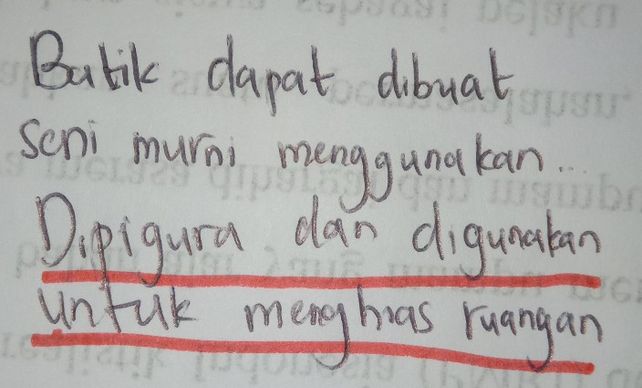 Batik dapat dibuat
seni murni menggunakan...
Dipigura dan digunakan
untuk menghias ruangan